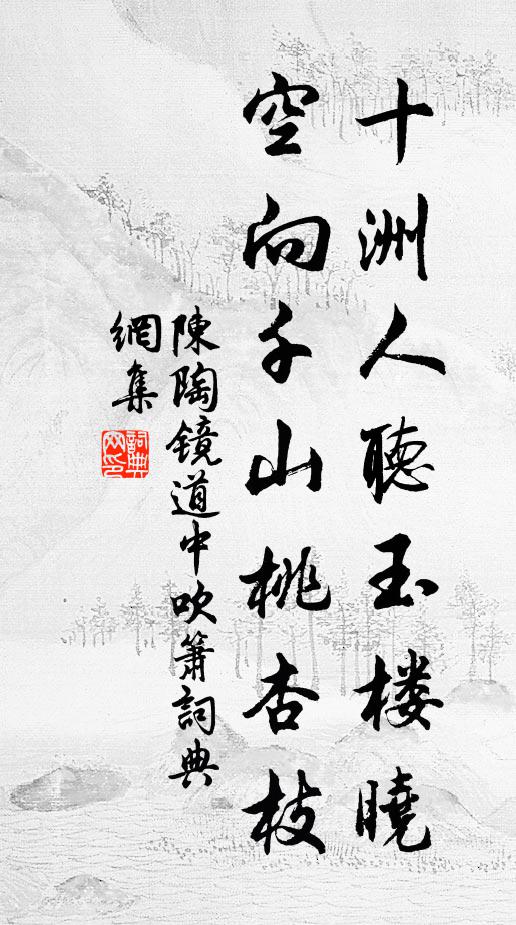 十洲人聽玉楼曉
空向千山桃杏枝
陳陶鏡道中吹簫詞典
網集
詞典網印